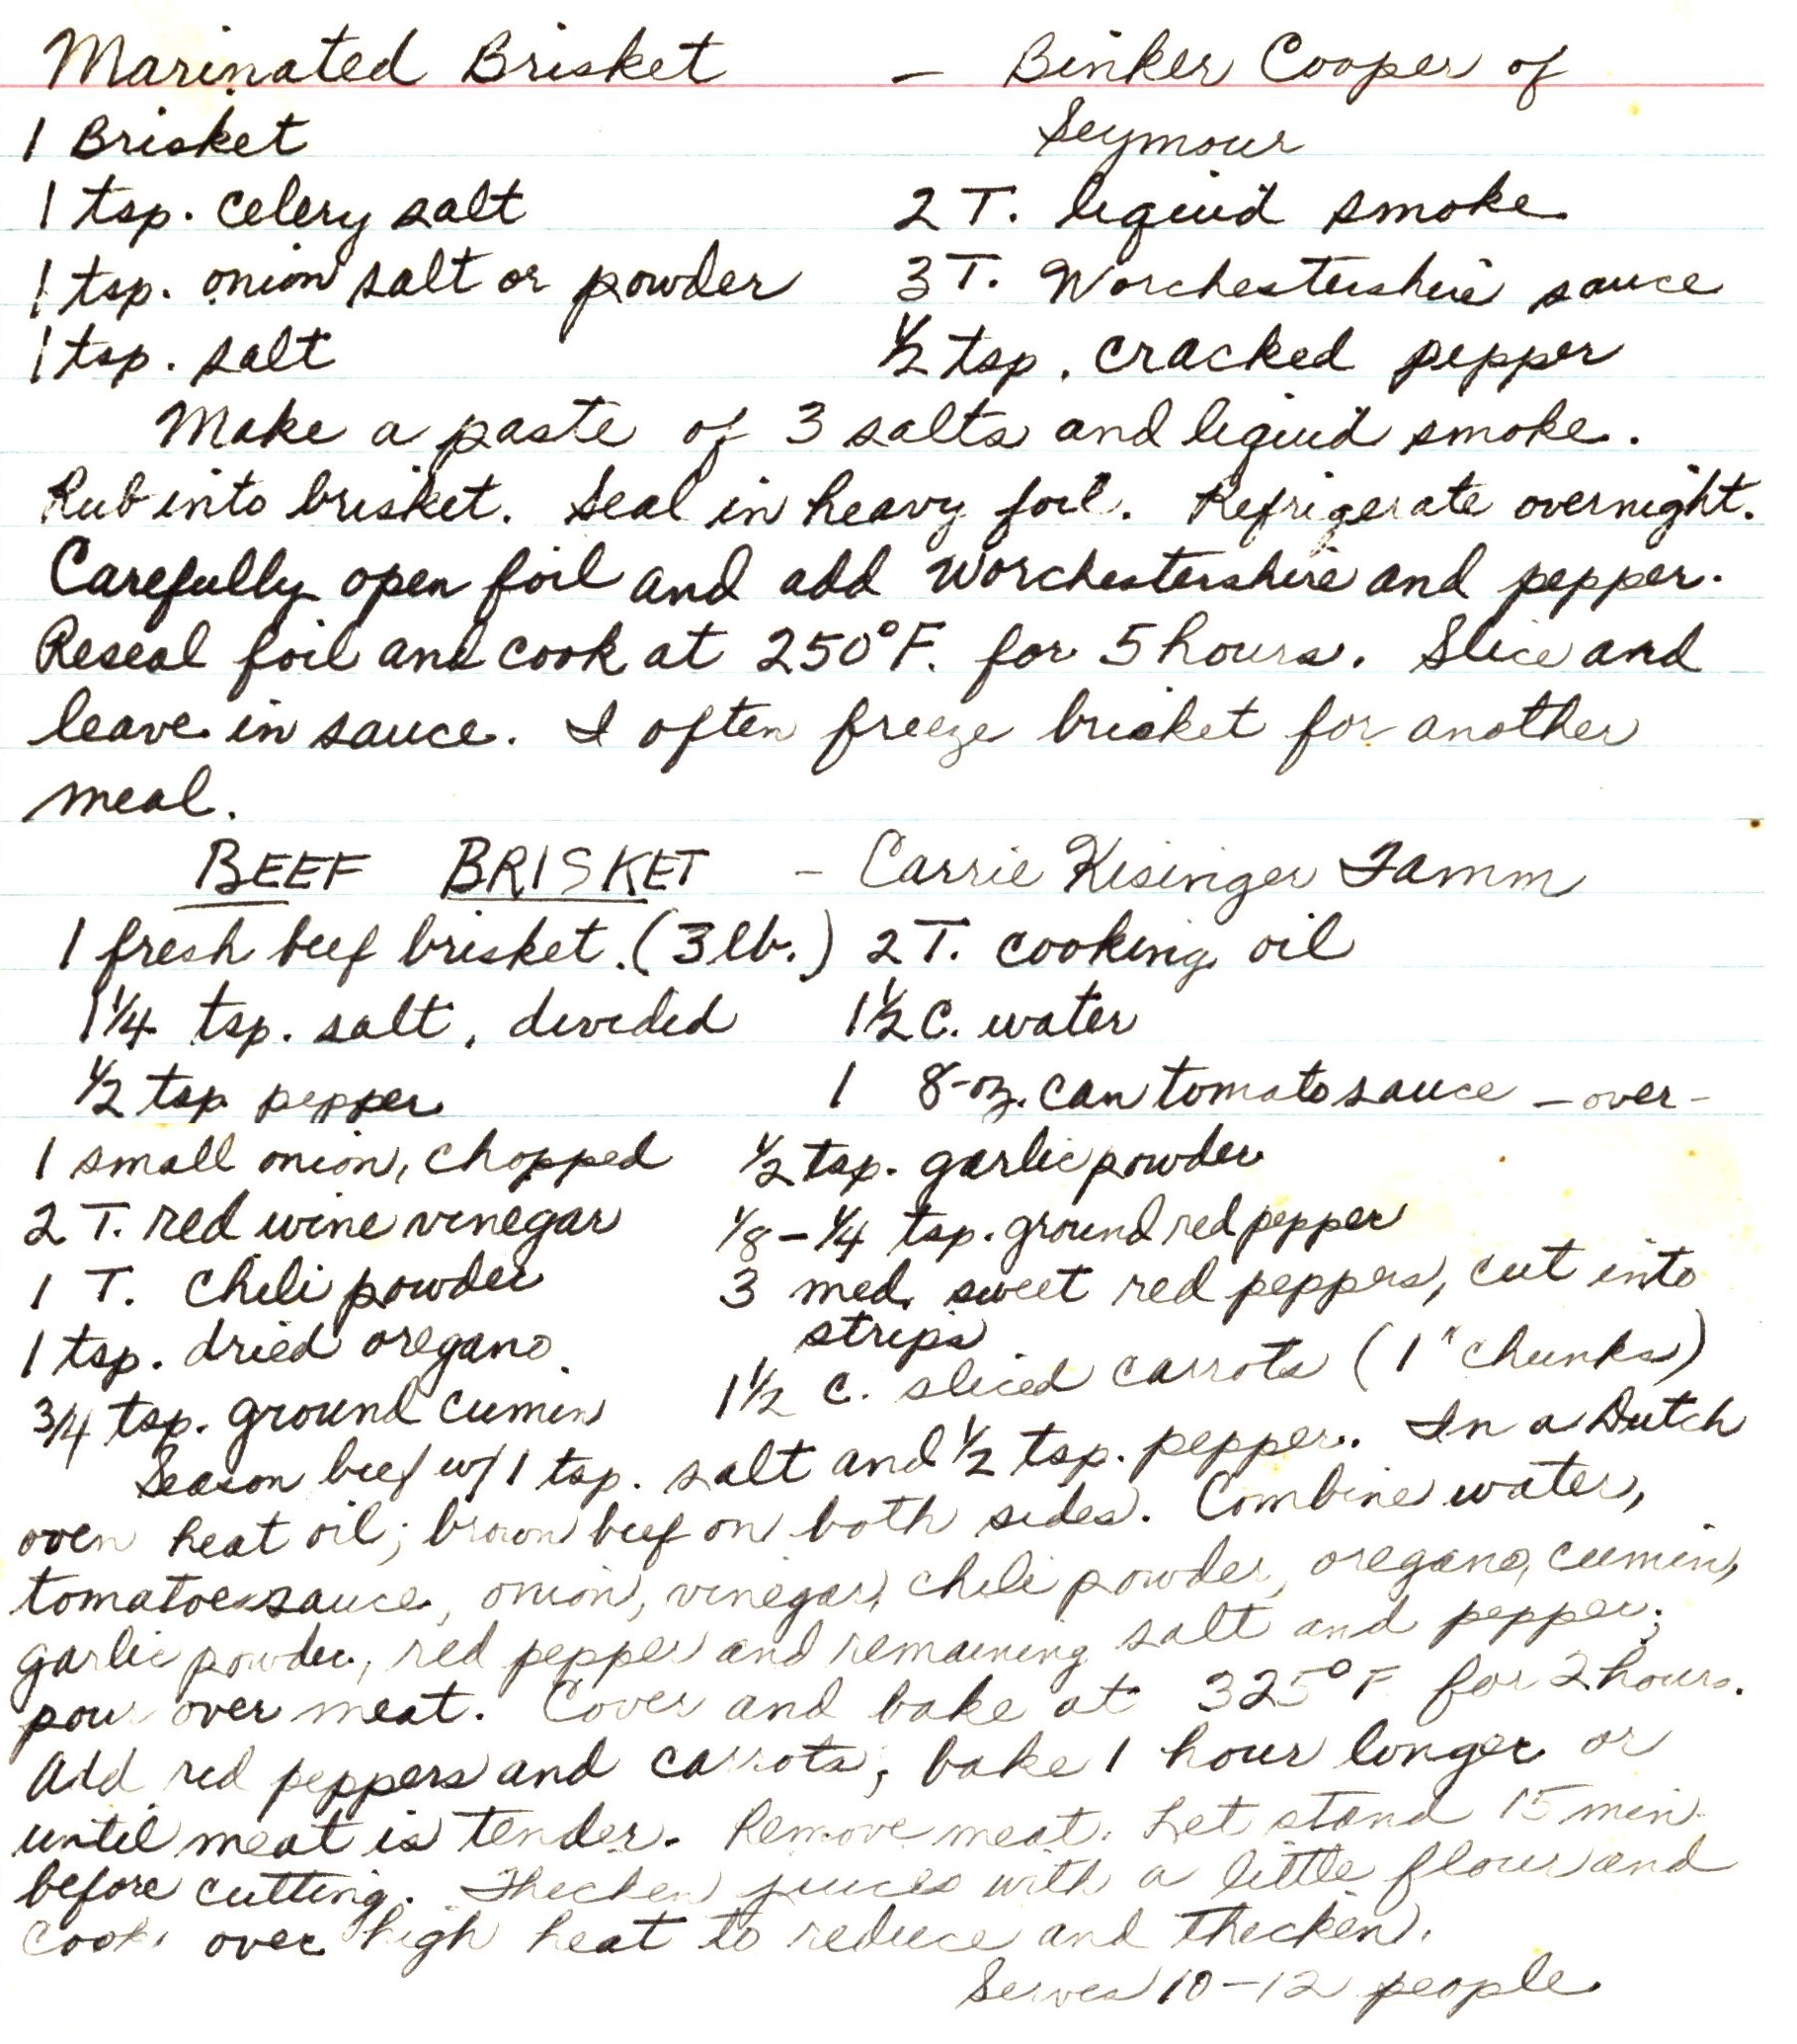 Marinated Brisket - Binker Cooper of
Seymour
1 Brisket
1 tsp. celery salt 2 T. liquid smoke
1 tsp. onion salt or powder 3 T. Worchestershire sauce
1 tsp. salt ½ tsp. cracked pepper
Make a paste of 3 salts and liquid smoke.
Rub into brisket. Seal in heavy foil. Refrigerate overnight.
Carefully open foil and add Worchestershire and pepper.
Reseal foil and cook at 250°F. for 5 hours. Slice and
leave in sauce. I often freeze brisket for another
meal.
BEEF BRISKET - Carrie Kisinger Tamm
1 fresh beef brisket. (3 lb.) 2 T. cooking oil
1¼ tsp. salt, divided 1½ c. water
½ tsp pepper 1 8-oz. can tomato sauce -over-
1 small onion, chopped ½ tsp. garlic powder
2 T. red wine vinegar ⅛-¼ tsp. ground red pepper
1 T. chili powder 3 med. sweet red peppers, cut into
strips
1 tsp. dried oregano
¾ tsp. ground cumin 1½ c. sliced carrots (1" chunks)
Season beef w/ 1 tsp. salt and ½ tsp. pepper. In a Dutch
oven heat oil; brown beef on both sides. Combine water,
tomatoe sauce, onion, vinegar, chili powder, oregano, cumin,
garlic powder, red pepper and remaining salt and pepper;
pour over meat. Cover and bake at 325°F for 2 hours.
Add red peppers and carrots; bake 1 hour longer or
until meat is tender. Remove meat. Let stand 15 min.
before cutting. Thicken juices with a little flour and
cook over high heat to reduce and thicken.
Serves 10-12 people